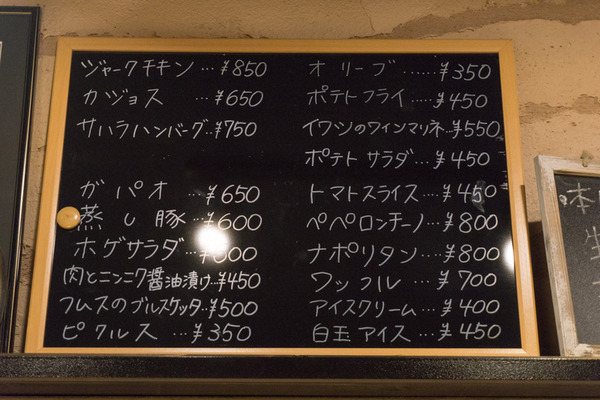 ジャークチキン…¥850
カジョス ¥650
サハラハンバーグ…¥750
ガパオ …¥650
蒸し豚…¥600
ホゲサラダ…
肉とニンニク醤油漬け…¥450
フムスのブルスケッタ…¥500
ピクルス …¥350
オリーブ ……¥350
ポテトフライ …¥450
イワシのワインマリネ…¥550
ポテトサラダ…¥450
トマトスライス…¥450
ペペロンチーノ…¥800
ナポリタン …¥800
ワッフル …¥700
アイスクリーム…¥400
白玉アイス …¥450
本